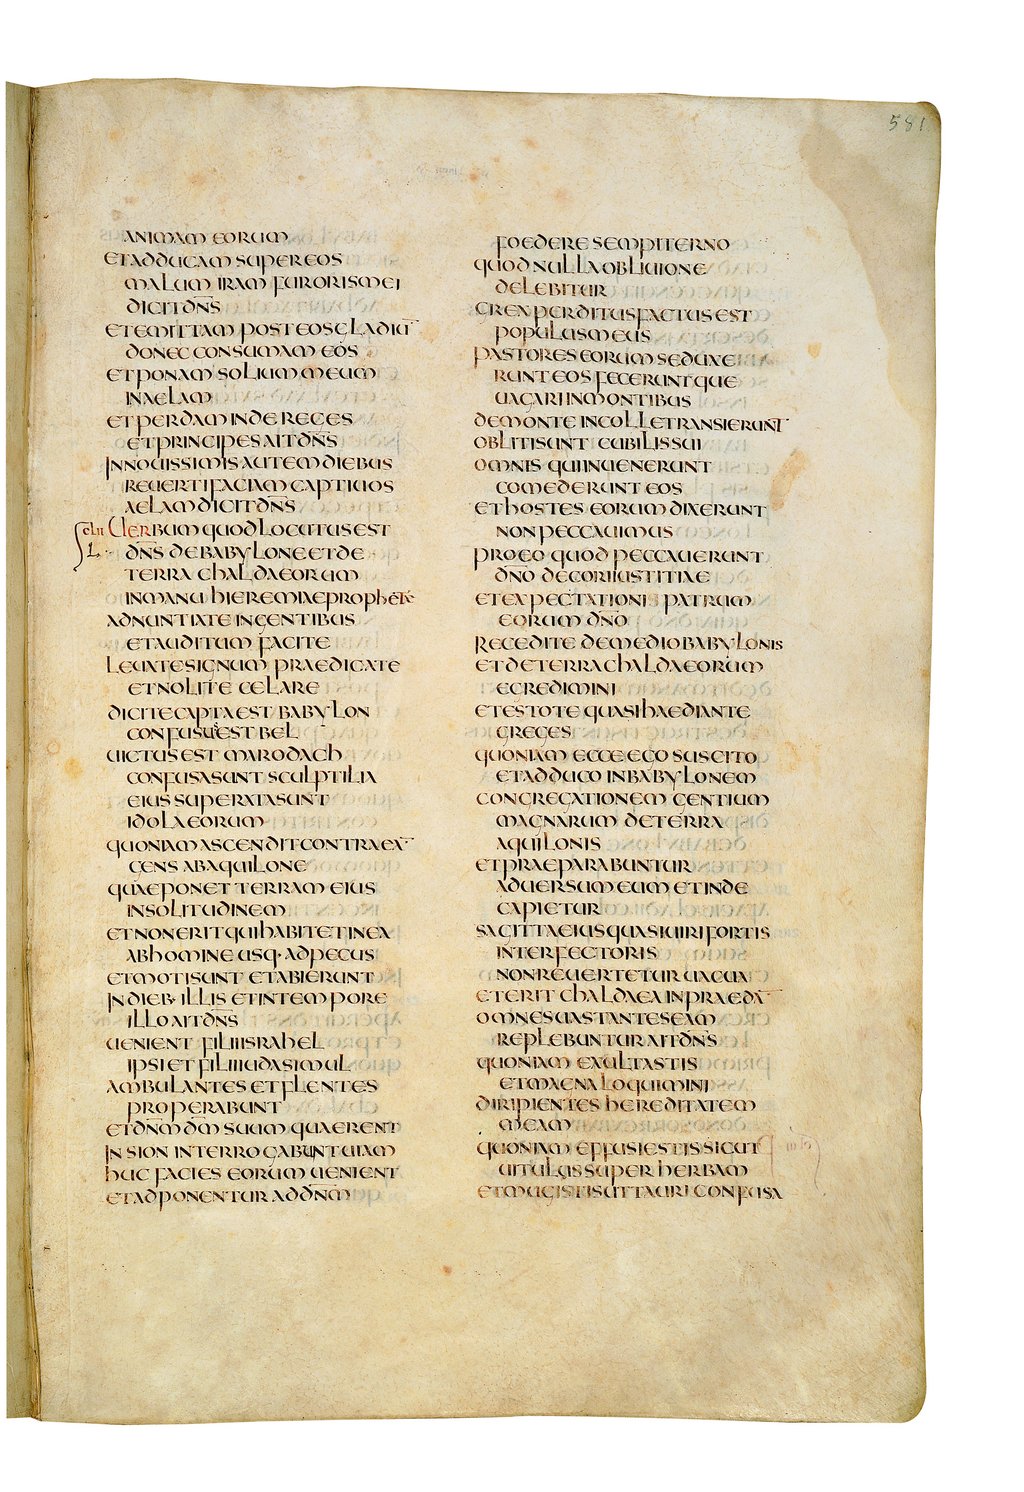 581
ANIMAM EORUM
ET ADDUCAM SUPER EOS
MALUM IRAM FURORIS MEI
DICIT DN̅S
ET EMITTAM POST EOS GLADIU̅
DONEC CONSUMAM EOS
ET PONAM SOLIUM MEUM
IN AELAM
ET PERDAM INDE REGES
ET PRINCIPES AIT DN̅S
IN NOUISSIMIS AUTEM DIEBUS
REUERTI FACIAM CAPTIUOS
AELAM DICIT DN̅S
CLII UERBUM QUOD LOCUTUS EST
L DN̅S DE BABYLONE ET DE
TERRA CHALDAEORUM
IN MANU HIEREMIAE PROPHETAE
ADNUNTIATE IN GENTIBUS
ET AUDITUM FACITE
LEUATE SIGNUM PRAEDICATE
ET NOLITE CELARE
DICITE CAPTA EST BABYLON
CONFUSUS EST BEL
UICTUS EST MARODACH
CONFUSA SUNT SCULPTILIA
EIUS SUPERATA SUNT
IDOLA EORUM
QUONIAM ASCENDIT CONTRA EA̅
GENS AB AQUILONE
QUAE PONET TERRAM EIUS
IN SOLITUDINEM
ET NON ERIT QUI HABITET IN EA
AB HOMINE USQ· AD PECUS
ET MOTI SUNT ET ABIERUNT
IN DIEB· ILLIS ET IN TEMPORE
ILLO AIT DN̅S
UENIENT FILII ISRAHEL
IPSI ET FILII IUDA SIMUL
AMBULANTES ET FLENTES
PROPERABUNT
ET DN̅M DM̅ SUUM QUAERENT
IN SION INTERROGABUNT UIAM
HUC FACIES EORUM UENIENT
ET ADPONENTUR AD DN̅M
FOEDERE SEMPITERNO
QUOD NULLA OBLIUIONE
DELEBITUR
GREX PERDITUS FACTUS EST
POPULUS MEUS
PASTORES EORUM SEDUXE
RUNT EOS FECERUNTQUE
UAGARI IN MONTIBUS
DE MONTE IN COLLE TRANSIERUNT
OBLITI SUNT CUBILIS SUI
OMNIS QUI INUENERUNT
COMEDERUNT EOS
ET HOSTES EORUM DIXERUNT
NON PECCAUIMUS
PRO EO QUOD PECCAUERUNT
DN̅O DECORI IUSTITIAE
ET EXPECTATIONI PATRUM
EORUM DN̅O
RECEDITE DE MEDIO BABYLONIS
ET DE TERRA CHALDAEORUM
EGREDIMINI
ET ESTOTE QUASI HAEDI ANTE
GREGES
QUONIAM ECCE EGO SUSCITO
ET ADDUCO IN BABYLONEM
CONGREGATIONEM GENTIUM
MAGNARUM DE TERRA
AQUILONIS
ET PRAEPARABUNTUR
ADUERSUM EUM ET INDE
CAPIETUR
SAGITTA EIUS QUASI UIRI FORTIS
INTERFECTORIS
NON REUERTETUR UACUA
ET ERIT CHALDAEA IN PRAEDA̅
OMNES UASTANTES EAM
REPLEBUNTUR AIT DN̅S
QUONIAM EXULTASTIS
ET MAGNA LOQUIMINI
DIRIPIENTES HEREDITATEM
MEAM
QUONIAM EFFUSI ESTIS SICUT
UITULUS SUPER HERBAM
ET MUGISTIS UT TAURI CONFUSA